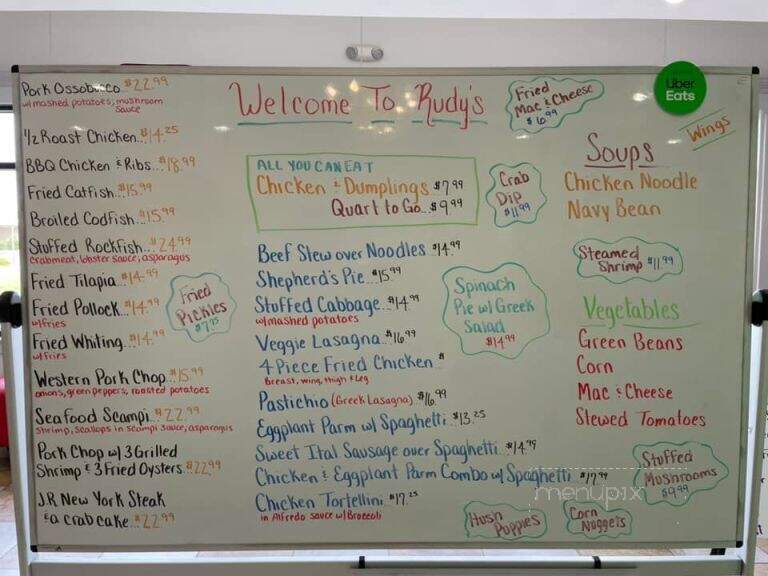 Pork Ossobucco..$22.99
w/mashed potatoes, mushroom
sauce
1/2 Roast Chicken..$14.25
BBQ Chicken & Ribs...$18.99
Fried Catfish...$15.99
Broiled Codfish...$15.99
Stuffed Rockfish...$24.99
crabmeat, lobster sauce, asparagus
Fried Tilapia...$14.99
Fried Pollock...$14.99
w/fries
Fried Whiting...$14.99
w/fries
Western Pork Chop...$15.99
onions, green peppers, roasted potatoes
Seafood Scampi...$22.99
shrimp, scallops in scampi sauce, asparagus
Pork Chop w/3 Grilled
Shrimp & 3 Fried Oysters..$22.99
J.R New York Steak
& a crab cake...$22.99
Fried
Pickles
$7.95
Welcome To Rudy's
ALL YOU CAN EAT
Chicken & Dumplings $7.99
Quart to Go...$9.99
Beef Stew over Noodles $14.99
Shepherd's Pie..$15.99
Stuffed Cabbage...$14.99
w/mashed potatoes
Veggie Lasagna...$16.99
4 Piece Fried Chicken $
breast, wing, thigh & leg
Pastichio (Greek Lasagna) $16.99
Eggplant Parm w/ Spaghetti..$13.25
Sweet Ital Sausage over Spaghetti..$14.99
Chicken & Eggplant Parm Combo w/ Spaghetti $17.99
Chicken Tortellini $17.25
in Alfredo sauce w/Broccoli
Fried
Mac & Cheese
$6.99
Crab
Dip
$11.99
Spinach
Pie w/ Greek
Salad
$14.99
Hush
Puppies
Corn
Nuggets
Uber
Eats
Wings
Soups
Chicken Noodle
Navy Bean
Steamed
Shrimp $11.99
Vegetables
Green Beans
Corn
Mac & Cheese
Stewed Tomatoes
Stuffed
Mushrooms
$9.99
menupix